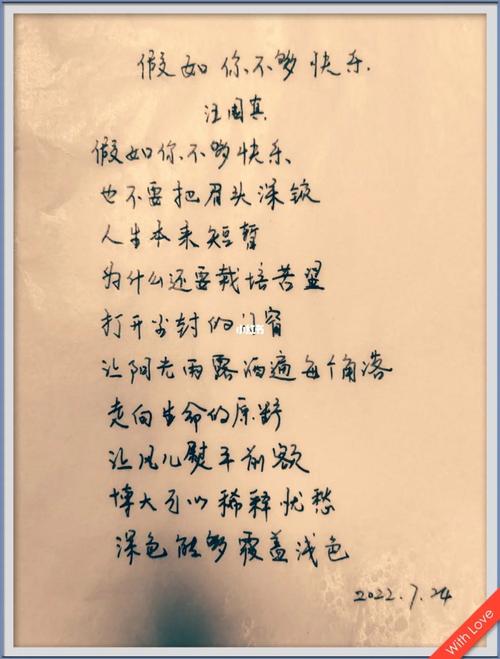 假如你不够快乐
汪国真
假如你不够快乐
也不要把眉头深锁
人生本来短暂
为什么还要栽培苦涩
打开尘封的窗
让阳光雨露洒遍每个角落
走向生命的原野
让风儿熨平前额
博大可以稀释忧愁
深色能够覆盖浅色
2022.7.24
With Love